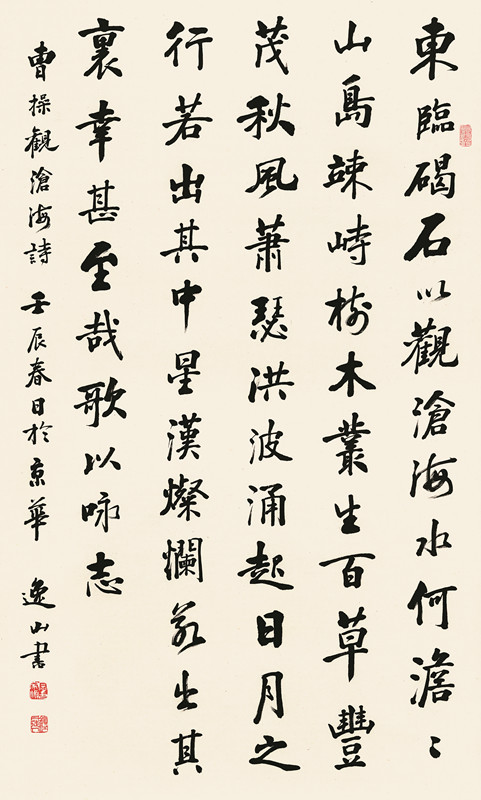 東臨碣石以觀滄海水何澹〻
山島竦峙樹木叢生百草豐
茂秋風蕭瑟洪波涌起日月之
行若出其中星漢燦爛若出其
裏幸甚至哉歌以咏志
曹操觀滄海詩 壬辰春日於京華 逸山書